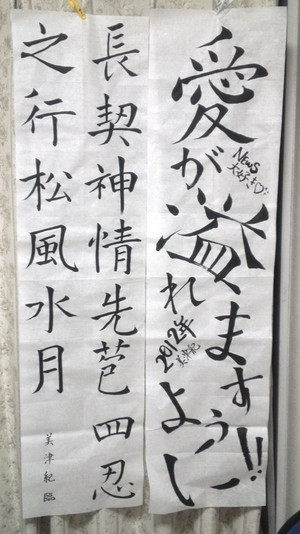 愛が溢れますように!!
NEWS
大好き
2012年
美津紀
長契神情先苞四忍
之行松風水月
美津紀臨